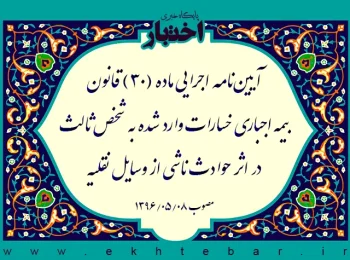 پایگاه خبری
اختبار
آیین‌نامه اجرایی ماده (۳۰) قانون
بیمه اجباری خسارات وارد شده به شخص ثالث
در اثر حوادث ناشی از وسایل نقلیه
مصوب ۱۳۹۶/۰۵/۰۸
www.ekhtebar.ir